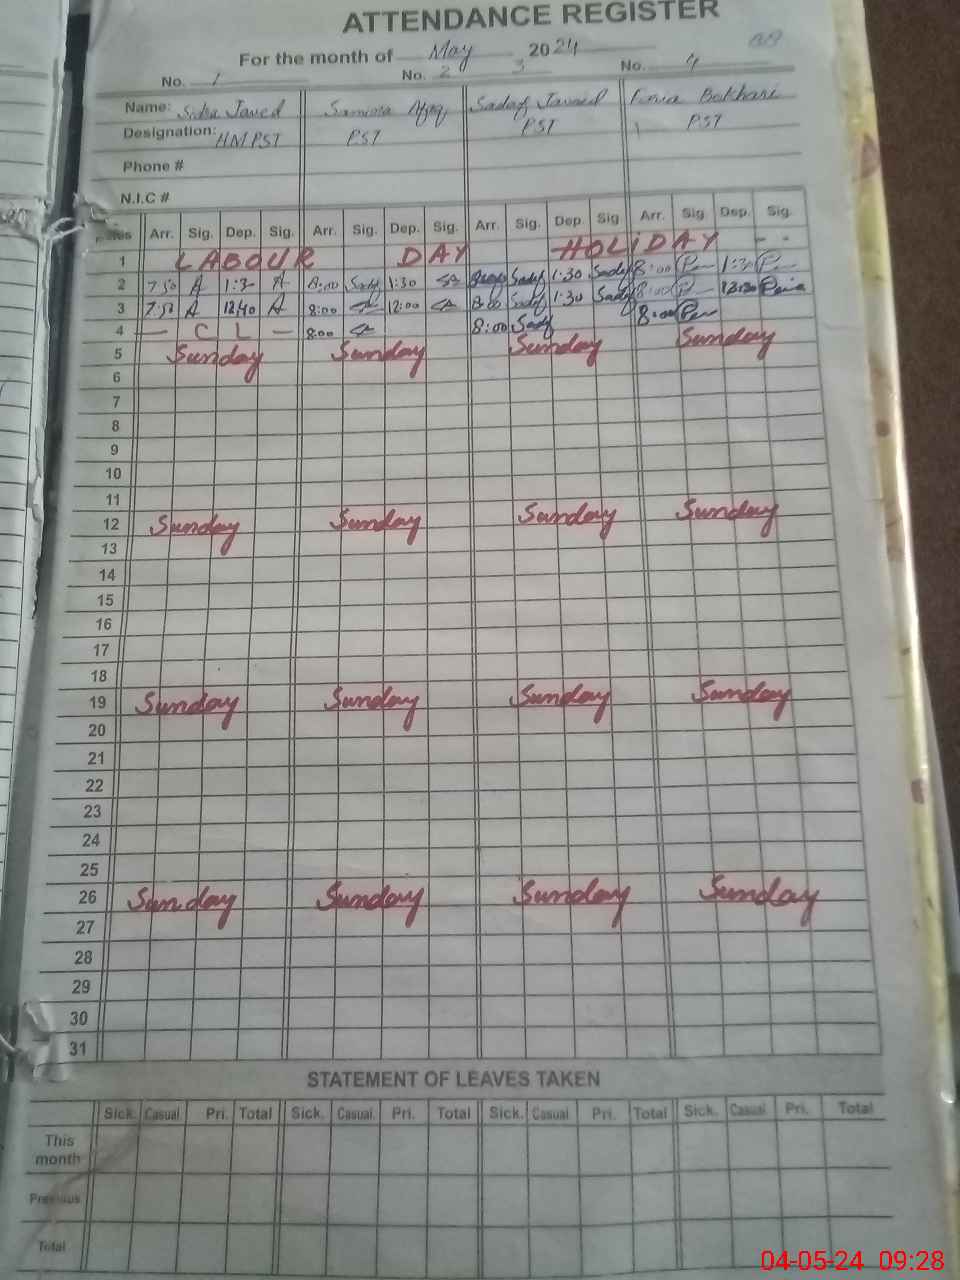 ATTENDANCE REGISTER
For the month of May 2024
No. 1 No. 2 3 No. 4
Name: Sidra Javed Samina Sadaf Javaid Bokhari
Designation: HM PST PST PST PST
Phone #
N.I.C #
Dates Arr. Sig. Dep. Sig. Arr. Sig. Dep. Sig. Arr. Sig. Dep. Sig Arr. Sig Dep. Sig.
1 LABOUR DAY HOLIDAY
2 7:50 A 1:30 A 8:00 1:30 Sadf 1:30 Sadf 8:00 1:30
3 7:50 A 12:40 A 8:00 12:00 8:00 Sadf 1:30 Sadf 8:00 12:30
4 — C L — 8:00 8:00 Sadf 8:00
5 Sunday Sunday Sunday Sunday
6
7
8
9
10
11
12 Sunday Sunday Sunday Sunday
13
14
15
16
17
18
19 Sunday Sunday Sunday Sunday
20
21
22
23
24
25
26 Sunday Sunday Sunday Sunday
27
28
29
30
31
STATEMENT OF LEAVES TAKEN
Sick. Casual Pri. Total Sick. Casual. Pri. Total Sick. Casual Pri. Total Sick. Casual Pri. Total
This
month
Previous
Total
04-05-24 09:28